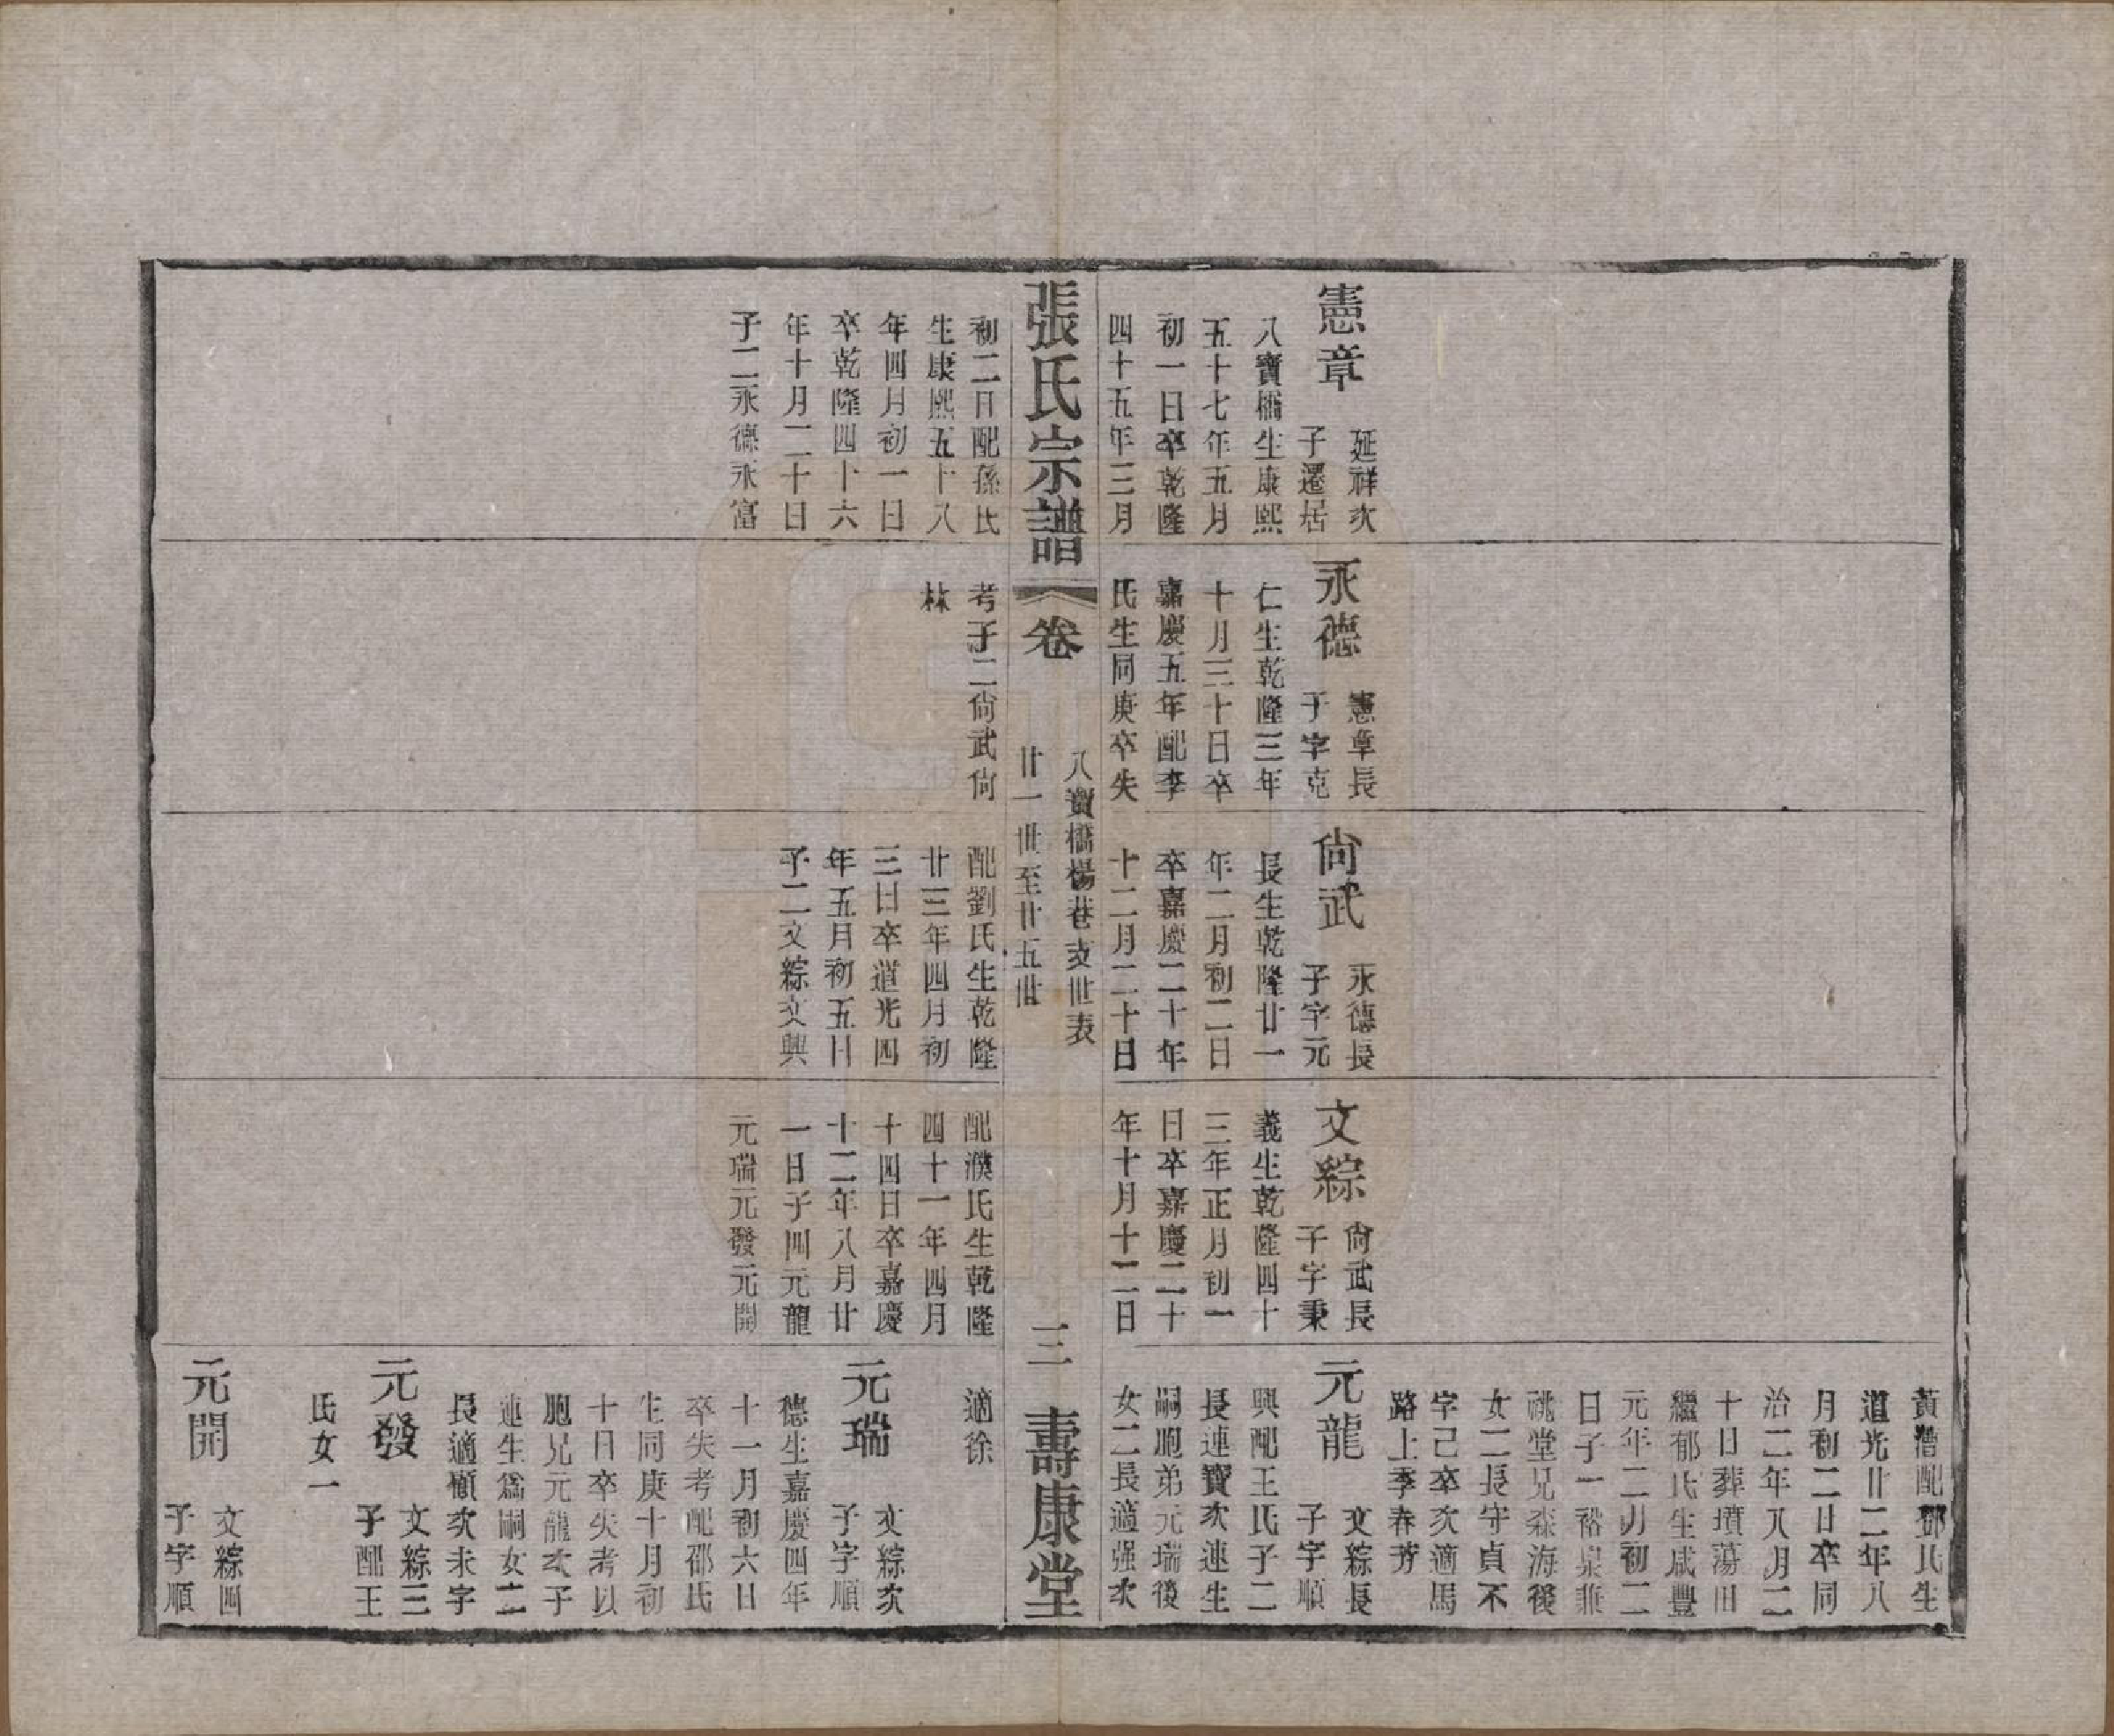 憲章
延祥次
子遷居
八寶橋生康熙
五十七年五月
初一日卒乾隆
四十五年三月
初二日配孫氏
生康熙五十八
年四月初一日
卒乾隆四十六
年十月二十日
子二永德永富
永德
憲章長
子字克
仁生乾隆三年
十月三十日卒
嘉慶五年配李
氏生同庚卒失
考子二尙武尙
林
尙武
永德長
子字元
長生乾隆廿一
年二月初二日
卒嘉慶二十年
十二月二十日
配劉氏生乾隆
廿三年四月初
三日卒道光四
年五月初五日
子二文綜文興
文綜
尙武長
子字秉
義生乾隆四十
三年正月初一
日卒嘉慶二十
年十月十二日
配濮氏生乾隆
四十一年四月
十四日卒嘉慶
十二年八月廿
一日子四元龍
元瑞元發元開
黃漕配鄧氏生
道光廿二年八
月初二日卒同
治二年八月二
十日葬墳蕩田
繼郁氏生咸豐
元年二月初二
日子一裕泉兼
祧堂兄森海後
女二長守貞不
字己卒次適馬
路上季春芳
元龍
文綜長
子字順
興配王氏子二
長連寶次連生
嗣胞弟元瑞後
女二長適强次
適徐
元瑞
文綜次
子字順
德生嘉慶四年
十一月初六日
卒失考配邵氏
生同庚十月初
十日卒失考以
胞兄元龍次子
連生爲嗣女二
長適顧次未字
元發
文綜三
子配王
氏女一
元開
文綜四
子字順
張氏宗譜
卷
八寶橋楊巷支世表
廿一世至廿五世
三
壽康堂